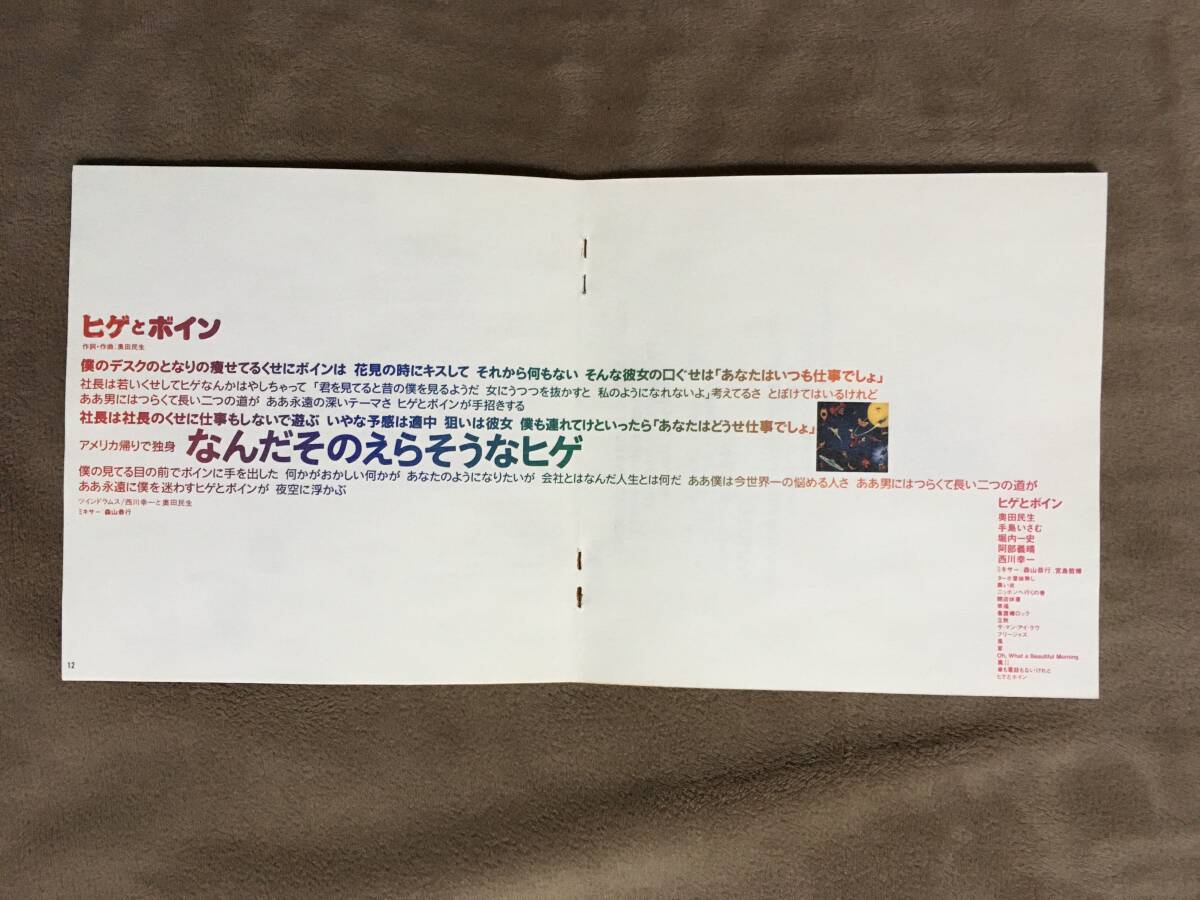 ヒゲとボイン
作詞・作曲:奥田民生
僕のデスクのとなりの痩せてるくせにボインは 花見の時にキスして それから何もない そんな彼女の口ぐせは「あなたはいつも仕事でしょ」
社長は若いくせしてヒゲなんかはやしちゃって「君を見てると昔の僕を見るようだ 女にうつつを抜かすと 私のようになれないよ」考えてるさ とぼけてはいるけれど
ああ男にはつらくて長い二つの道が ああ永遠の深いテーマさ ヒゲとボインが手招きする
社長は社長のくせに仕事もしないで遊ぶ いやな予感は適中 狙いは彼女 僕も連れてけといったら「あなたはどうせ仕事でしょ」
アメリカ帰りで独身 なんだそのえらそうなヒゲ
僕の見てる目の前でボインに手を出した 何かがおかしい何かが あなたのようになりたいが 会社とはなんだ人生とは何だ ああ僕は今世界一の悩める人さ ああ男にはつらくて長い二つの道が
ああ永遠に僕を迷わすヒゲとボインが 夜空に浮かぶ
ツインドラムス/西川幸一と奥田民生
ミキサー 森山恭行
12
ヒゲとボイン
奥田民生
手島いさむ
堀内一史
阿部義晴
西川幸一
ミキサー 森山恭行、宮島哲博
ターボ意味無し
黒い炎
ニッポンへ行くの巻
開店休業
幸福
看護婦ロック
立秋
ザ・マン・アイ・ラヴ
フリージャズ
風
家
Oh, What a Beautiful Morning
風II
車も電話もないけれど
ヒゲとボイン